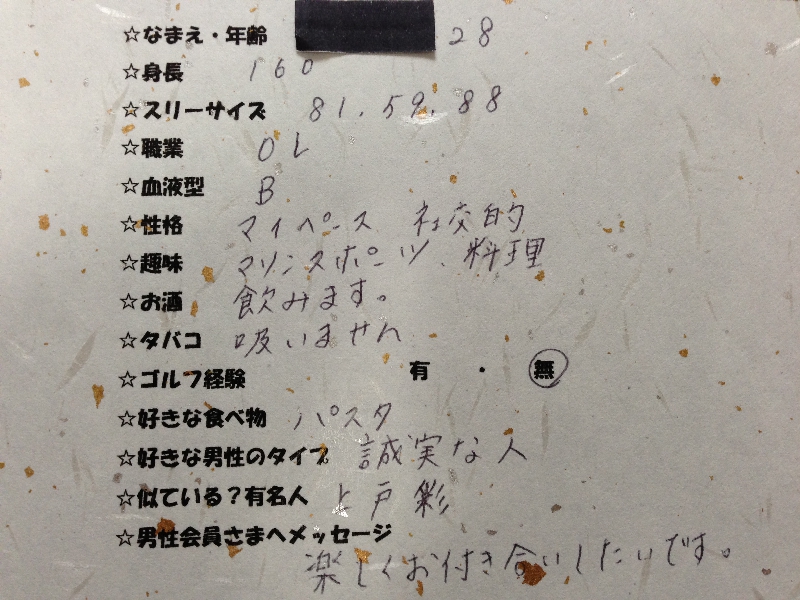 ☆なまえ・年齢 28
☆身長 160
☆スリーサイズ 81.59.88
☆職業 OL
☆血液型 B
☆性格 マイペース 社交的
☆趣味 マリンスポーツ、料理
☆お酒 飲みます。
☆タバコ 吸いません
☆ゴルフ経験 有・無
☆好きな食べ物 パスタ
☆好きな男性のタイプ 誠実な人
☆似ている?有名人 上戸彩
☆男性会員さまへメッセージ
楽しくお付き合いしたいです。